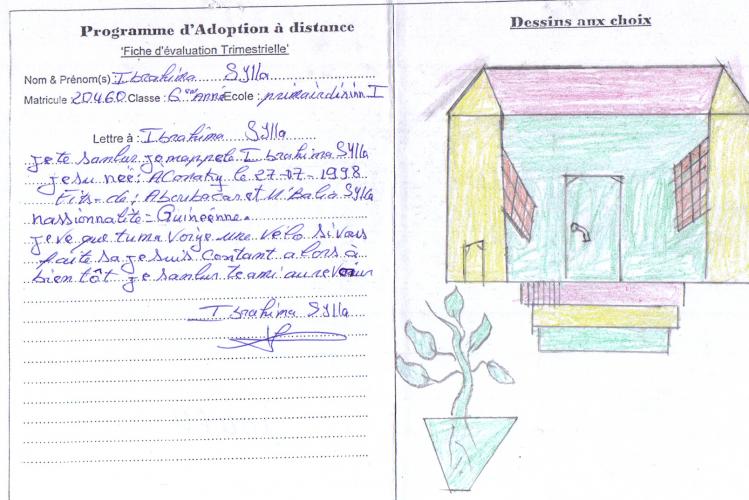 Programme d'Adoption à distance
'Fiche d'évaluation Trimestrielle'
Nom & Prénom(s) Ibrahima SYlla
Matricule : 20460 Classe : 6ème Année Ecole : primair dixin I
Lettre à : Ibrahima SYlla
je te sanlur je mappele Ibrahima SYlla
je su neé: AConakry le 27-07-1998
Fits-de: Aboubacar et M'Balia SYlla
nassionnalité = Guineénne.
je ve que tu ma voije une vélo si vous
faite sa je suis contant alors à
bien tôt je sanlur te ami au revoir
Ibrahima SYlla
Dessins aux choix